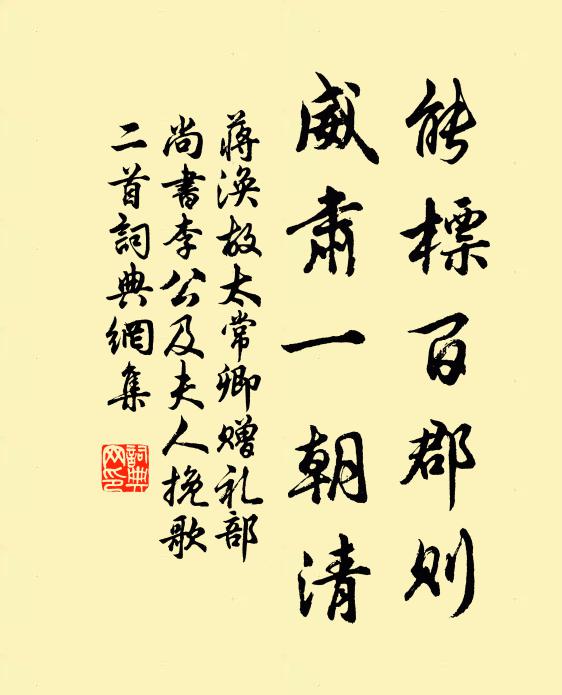 能標百郡則
威肅一朝清
蔣渙故太常卿赠礼部
尚書李公及夫人挽歌
二首詞典網集
詞典
网印